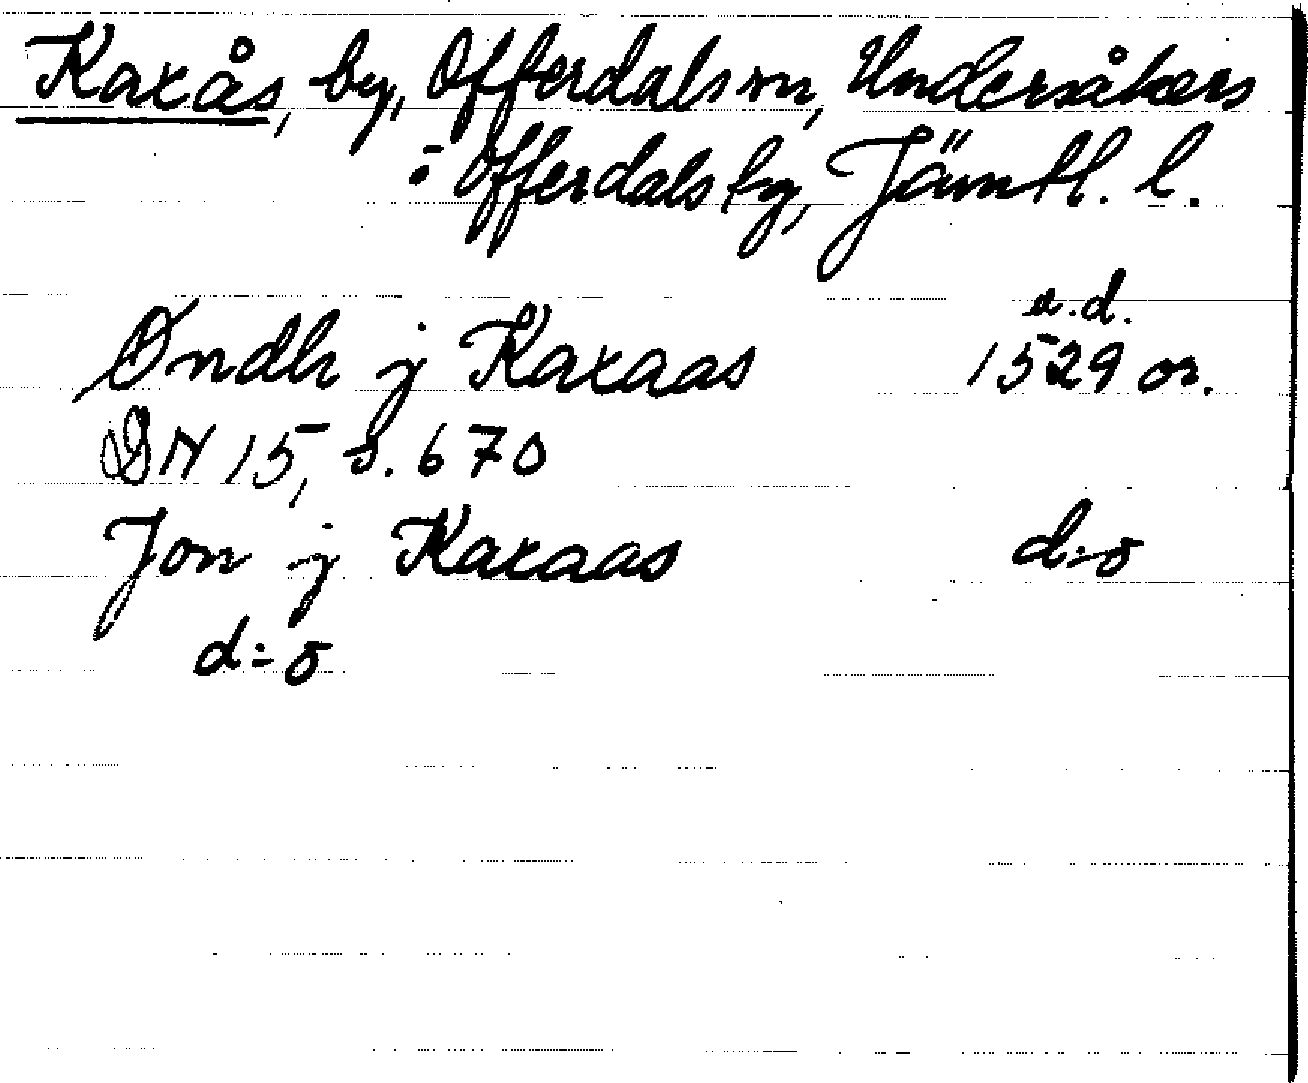 Kaxås, by, Offerdals sn, Undersåkers
o Offerdals tg, Jämtl. l.
u.d.
Øndh j Kaxaas 1529 or.
DN 15, s. 670
Jon j Kaxaas d:o
d:o